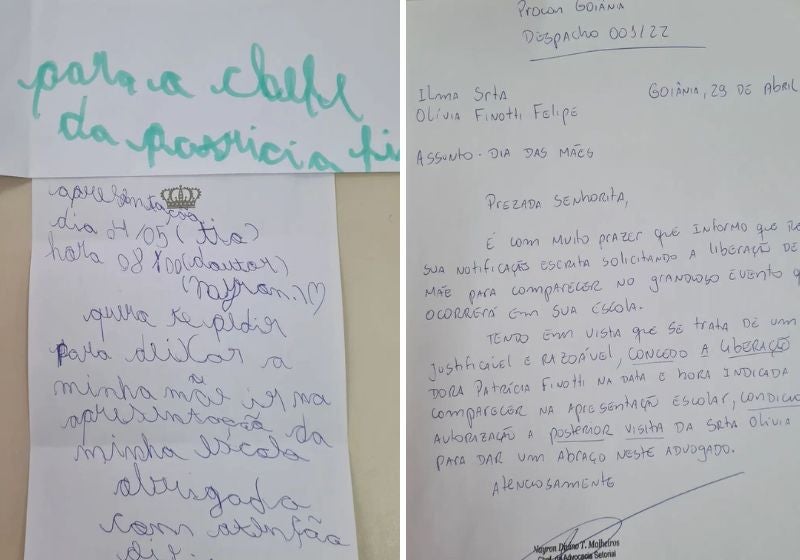 para a chefe
da patricia fi
apresentação
dia 04/05 (tia)
hora 08:00 (doutor)
(nayron.)
quria te pidir
para deixar a
minha mãe ir na
apresentação da
minha escola
obrigada
com atenção
Procon Goiânia
Despacho 001/22
Ilma Srta
Olívia Finotti Felipe
Goiânia, 29 de Abril
Assunto - Dia das Mães
Prezada Senhorita,
É com muito prazer que informo que
sua notificação escrita solicitando a liberação de
mãe para comparecer no grandioso evento
ocorrerá em sua escola.
Tendo em vista que se trata de um
justificável e razoável, concedo a liberação
dora Patrícia Finotti na data e hora indicada
comparecer na apresentação escolar, condicio
autorização a posterior visita da Srta Olívia
para dar um abraço neste advogado.
Atenciosamente
Nayron Divino T. Malheiros
Advocacia Setorial